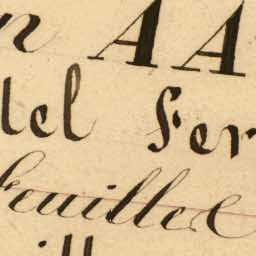 n AA
tel Fer
Feuilled
ill